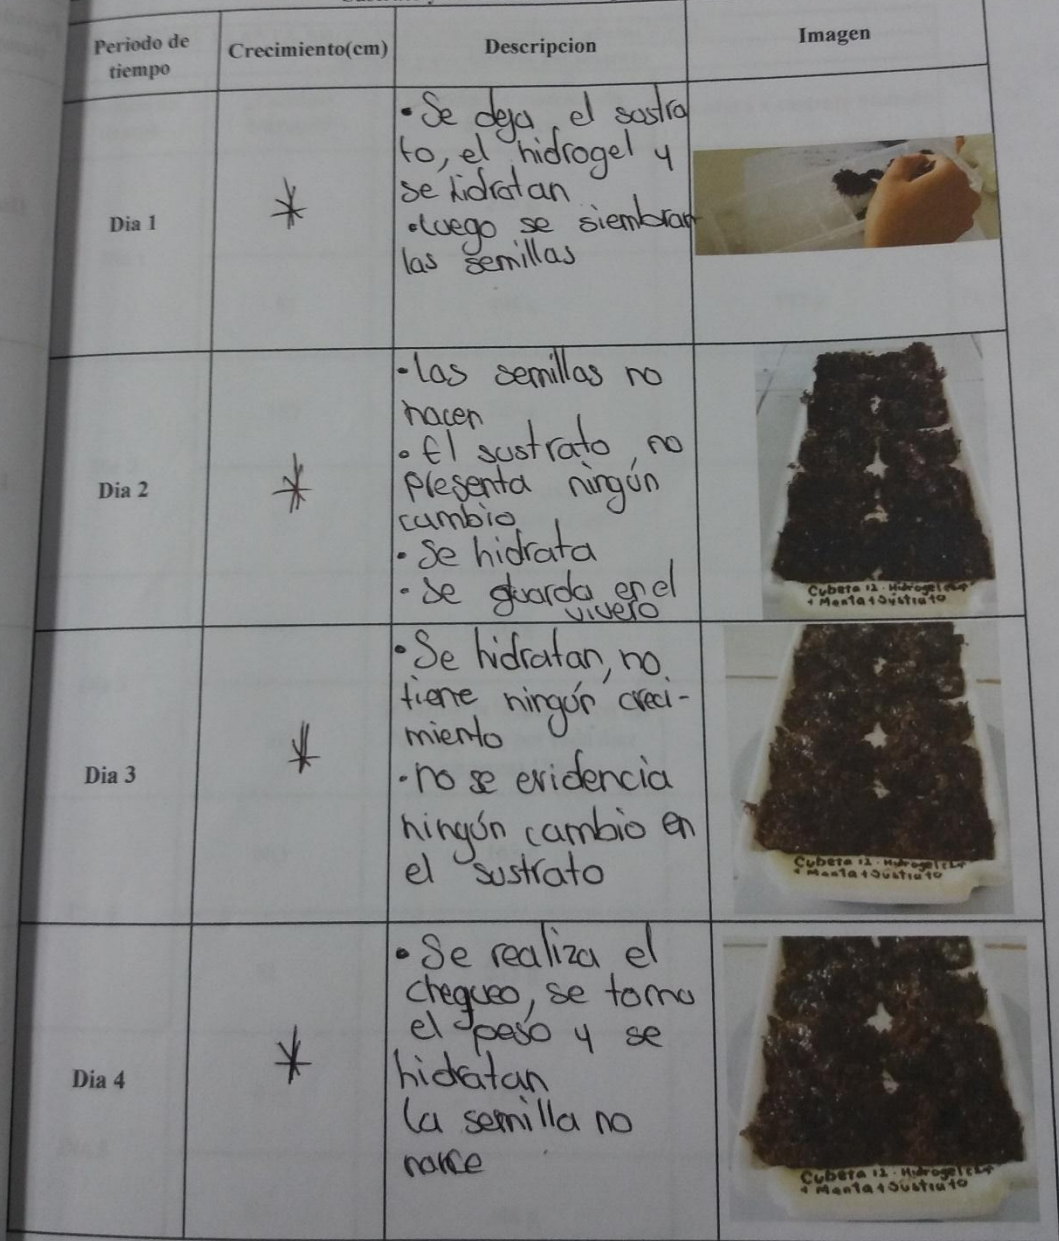 Periodo de
tiempo
Crecimiento(cm)
Descripcion
Imagen
Dia 1
• Se deja el sustra
to, el hidrogel y
se hidratan
• luego se siembran
las semillas
Dia 2
• las semillas no
nacen
• El sustrato no
presenta ningún
cambio
• Se hidrata
• Se guarda en el
vivero
Cubeta 12 - Hidrogel
+ Menta + Sustrato
Dia 3
• Se hidratan, no
tiene ningún creci-
miento
• no se evidencia
ningún cambio en
el sustrato
Cubeta 12 - Hidrogel
+ Menta + Sustrato
Dia 4
• Se realiza el
chequeo, se toma
el peso y se
hidratan
la semilla no
nace
Cubeta 12 - Hidrogel
+ Menta + Sustrato